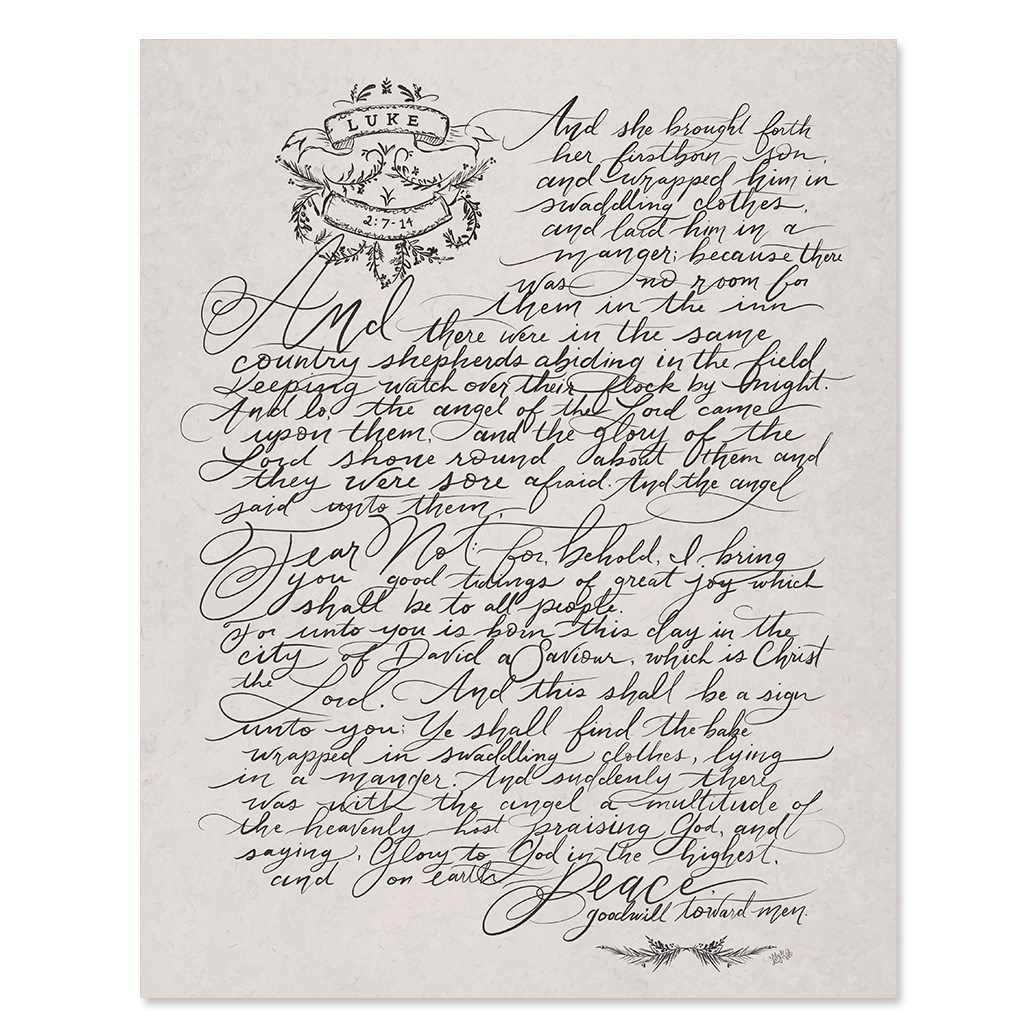 LUKE
2:7-14
And she brought forth
her firstborn son,
and wrapped him in
swaddling clothes,
and laid him in a
manger; because there
was no room for
them in the inn
And there were in the same
country shepherds abiding in the field
keeping watch over their flock by night.
And lo, the angel of the Lord came
upon them, and the glory of the
Lord shone round about them and
they were sore afraid. And the angel
said unto them,
Fear Not: for, behold, I bring
you good tidings of great joy which
shall be to all people.
For unto you is born this day in the
city of David a Saviour, which is Christ
the Lord. And this shall be a sign
unto you: Ye shall find the babe
wrapped in swaddling clothes, lying
in a manger. And suddenly there
was with the angel a multitude of
the heavenly host praising God, and
saying, Glory to God in the highest,
and on earth Peace,
goodwill toward men.